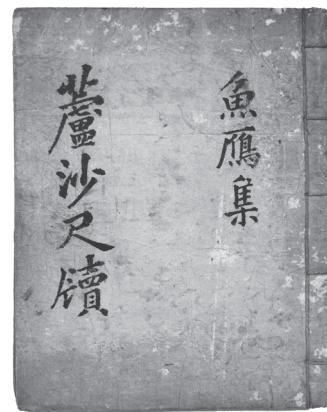 魚鴈集
蘆沙尺牘